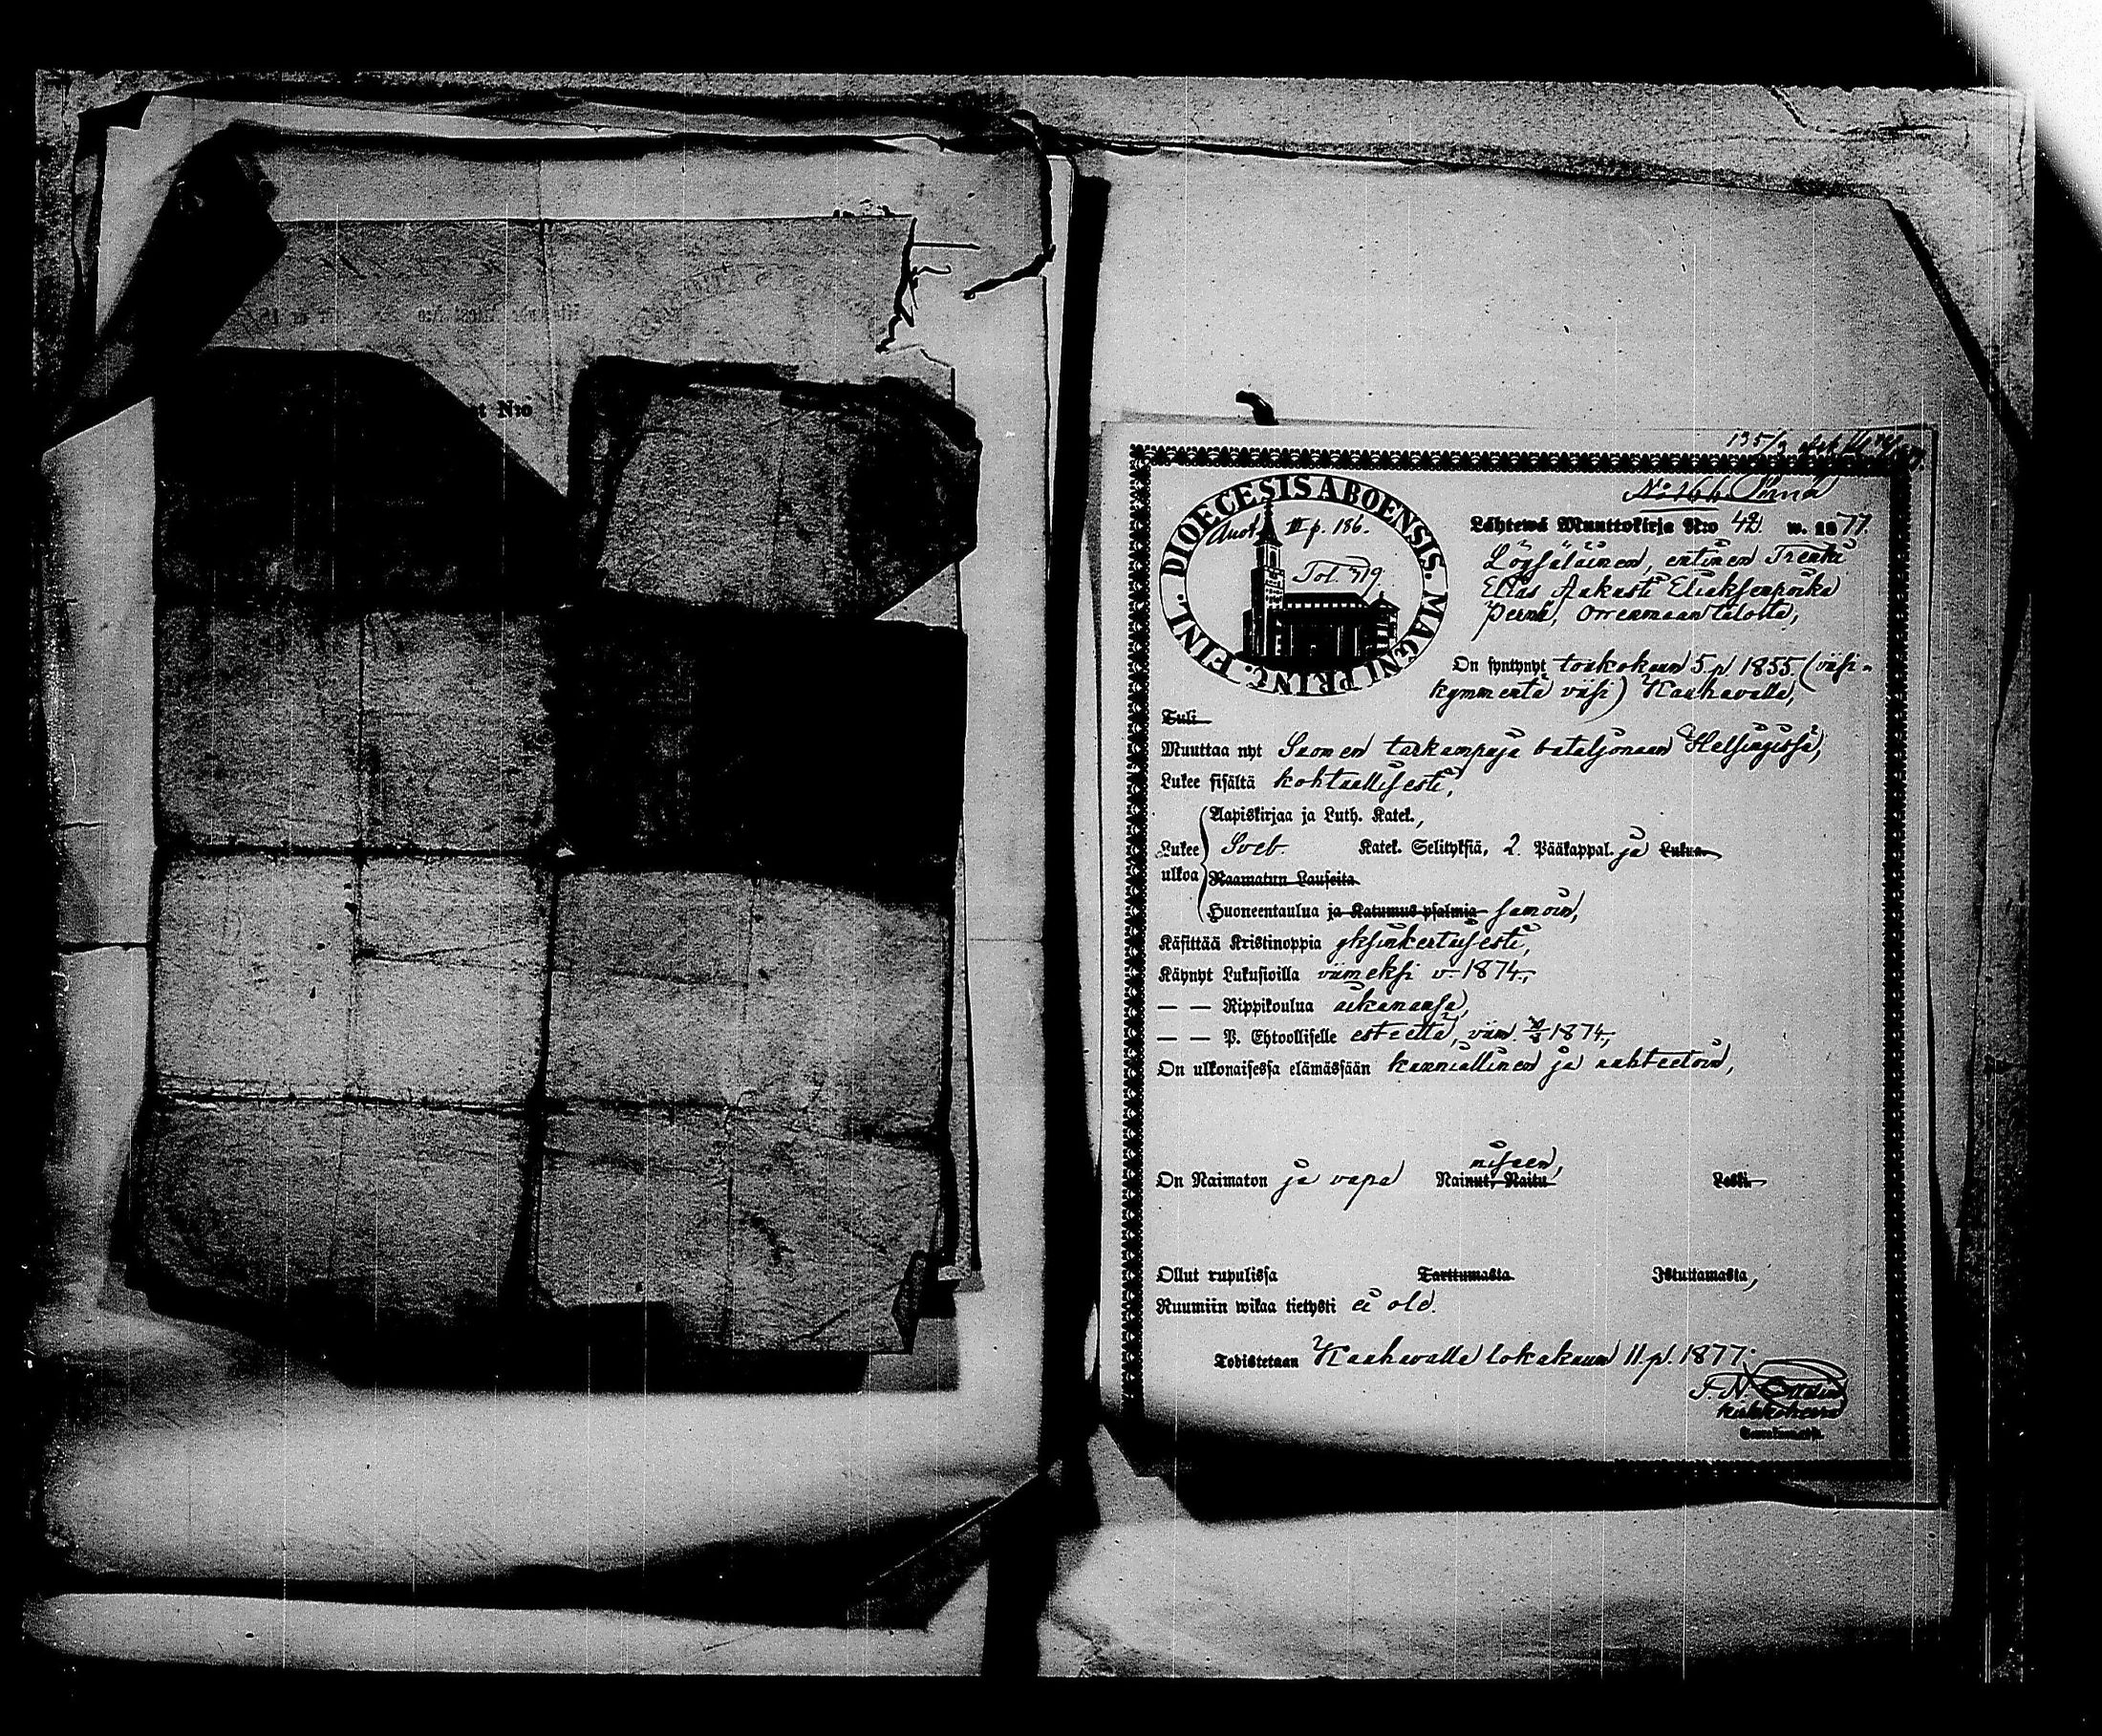 t N:o
135/3
N:o 166 Pernä
DIOECESIS ABOENSIS. MAGNI PRINC. FINL.
Anot. III p. 186.
Fol. 719.
Lähtewä Muuttokirja N:o 42. w. 1877.
Löysäläinen, entinen Trenki
Elias Aukusti Eliaksenpoika
Pernä, Orrenmaan talosta,
On syntynyt toukokuun 5 p. 1855. (viisi-
kymmentä viisi) Kauhavalla,
Tuli
Muuttaa nyt Suomen tarkampuja bataljonaan Helsingissä,
Lukee sisältä kohtuullisesti,
Aapiskirjaa ja Luth. Katek.,
Lukee ulkoa Sveb. Katek. Selityksiä, 2. Pääkappal. ja Lukua
Raamatun Lauseita
Huoneentaulua ja Katumus psalmia samoin,
Käsittää Kristinoppia yksinkertaisesti,
Käynyt Lukusioilla viimeksi v. 1874,
— — Rippikoulua aikanansa,
— — P. Ehtoollisella esteettä, viim. 1874,
On ulkonaisessa elämässään kunniallinen ja nuhteetoin,
On Naimaton ja vapa Nainut, Naitu naiseen, Leski
Ollut rupulissa Tarttumasta Istuttamasta,
Ruumiin wikaa tietysti ei ole.
Todistetaan Kauhavalla lokakuun 11 p. 1877.
kirkkoherra